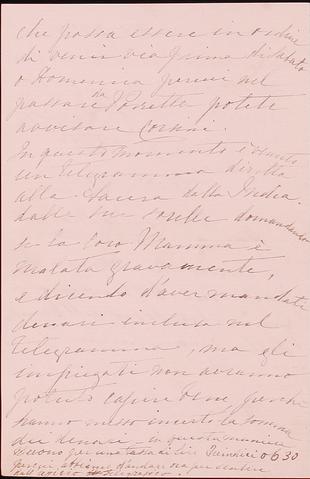 che possa essere in ordine
di venir via prima di Sabato
o Domenica perciò nel
passare da Poretta potete
avvisare Corsini.
In questo momento è venuto
un telegramma diretto
alla Sacra dalla India.
dalle sue sorelle domandando
se la loro Mamma è
malata gravemente,
e dicendo d'aver mandati
denari inclusa nel
telegramma, ma gli
impiegati non avranno
potuto capire bene perchè
hanno messo incerto la somma
dei denari — in questa maniera
per una tassa di Lire 6 30
perciò andare ora per sentire